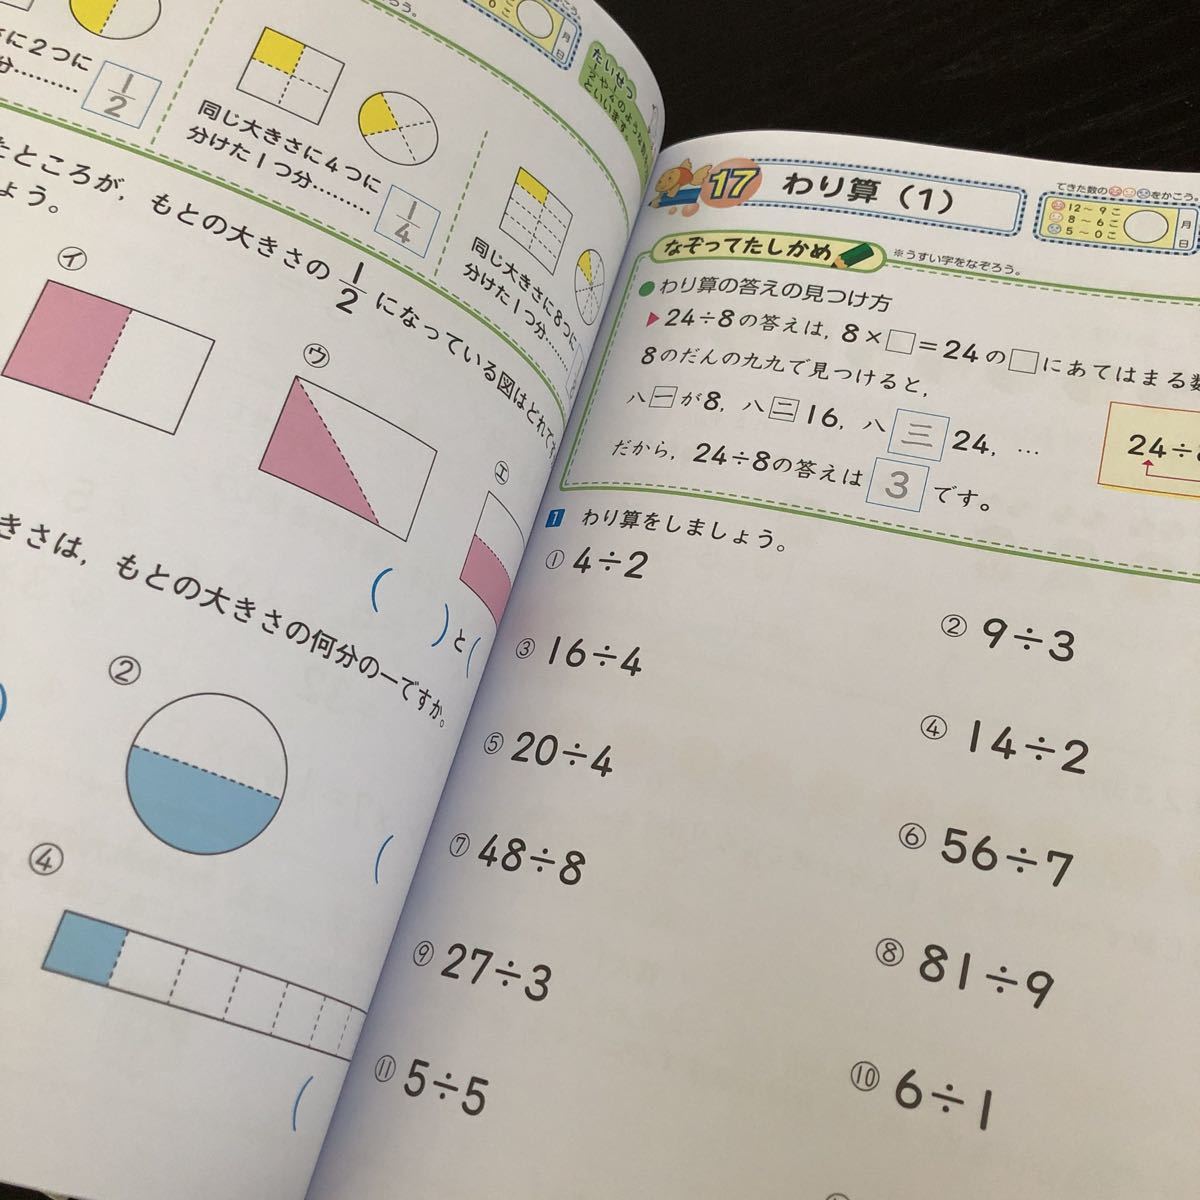 さに2つに
分………
1/2
同じ大きさに4つに
分けた1つ分………
1/4
同じ大きさに8つに
分けた1つ分………
たいせつ
といいます。
月
日
たところが，もとの大きさの1/2になっている図はどれですか
ょう。
㋑
㋒
㋓
(　)と(
きさは，もとの大きさの何分の一ですか。
②
④
17 わり算（1）
できた数の をかこう。
12～9こ
8～6こ
5～0こ
月
日
なぞってたしかめ
※うすい字をなぞろう。
●わり算の答えの見つけ方
▶24÷8の答えは，8×□=24の□にあてはまる数
8のだんの九九で見つけると，
八一が8，八二16，八三24，…
だから，24÷8の答えは3です。
24÷8
1 わり算をしましょう。
① 4÷2
② 9÷3
③ 16÷4
④ 14÷2
⑤ 20÷4
⑥ 56÷7
⑦ 48÷8
⑧ 81÷9
⑨ 27÷3
⑩ 6÷1
⑪ 5÷5